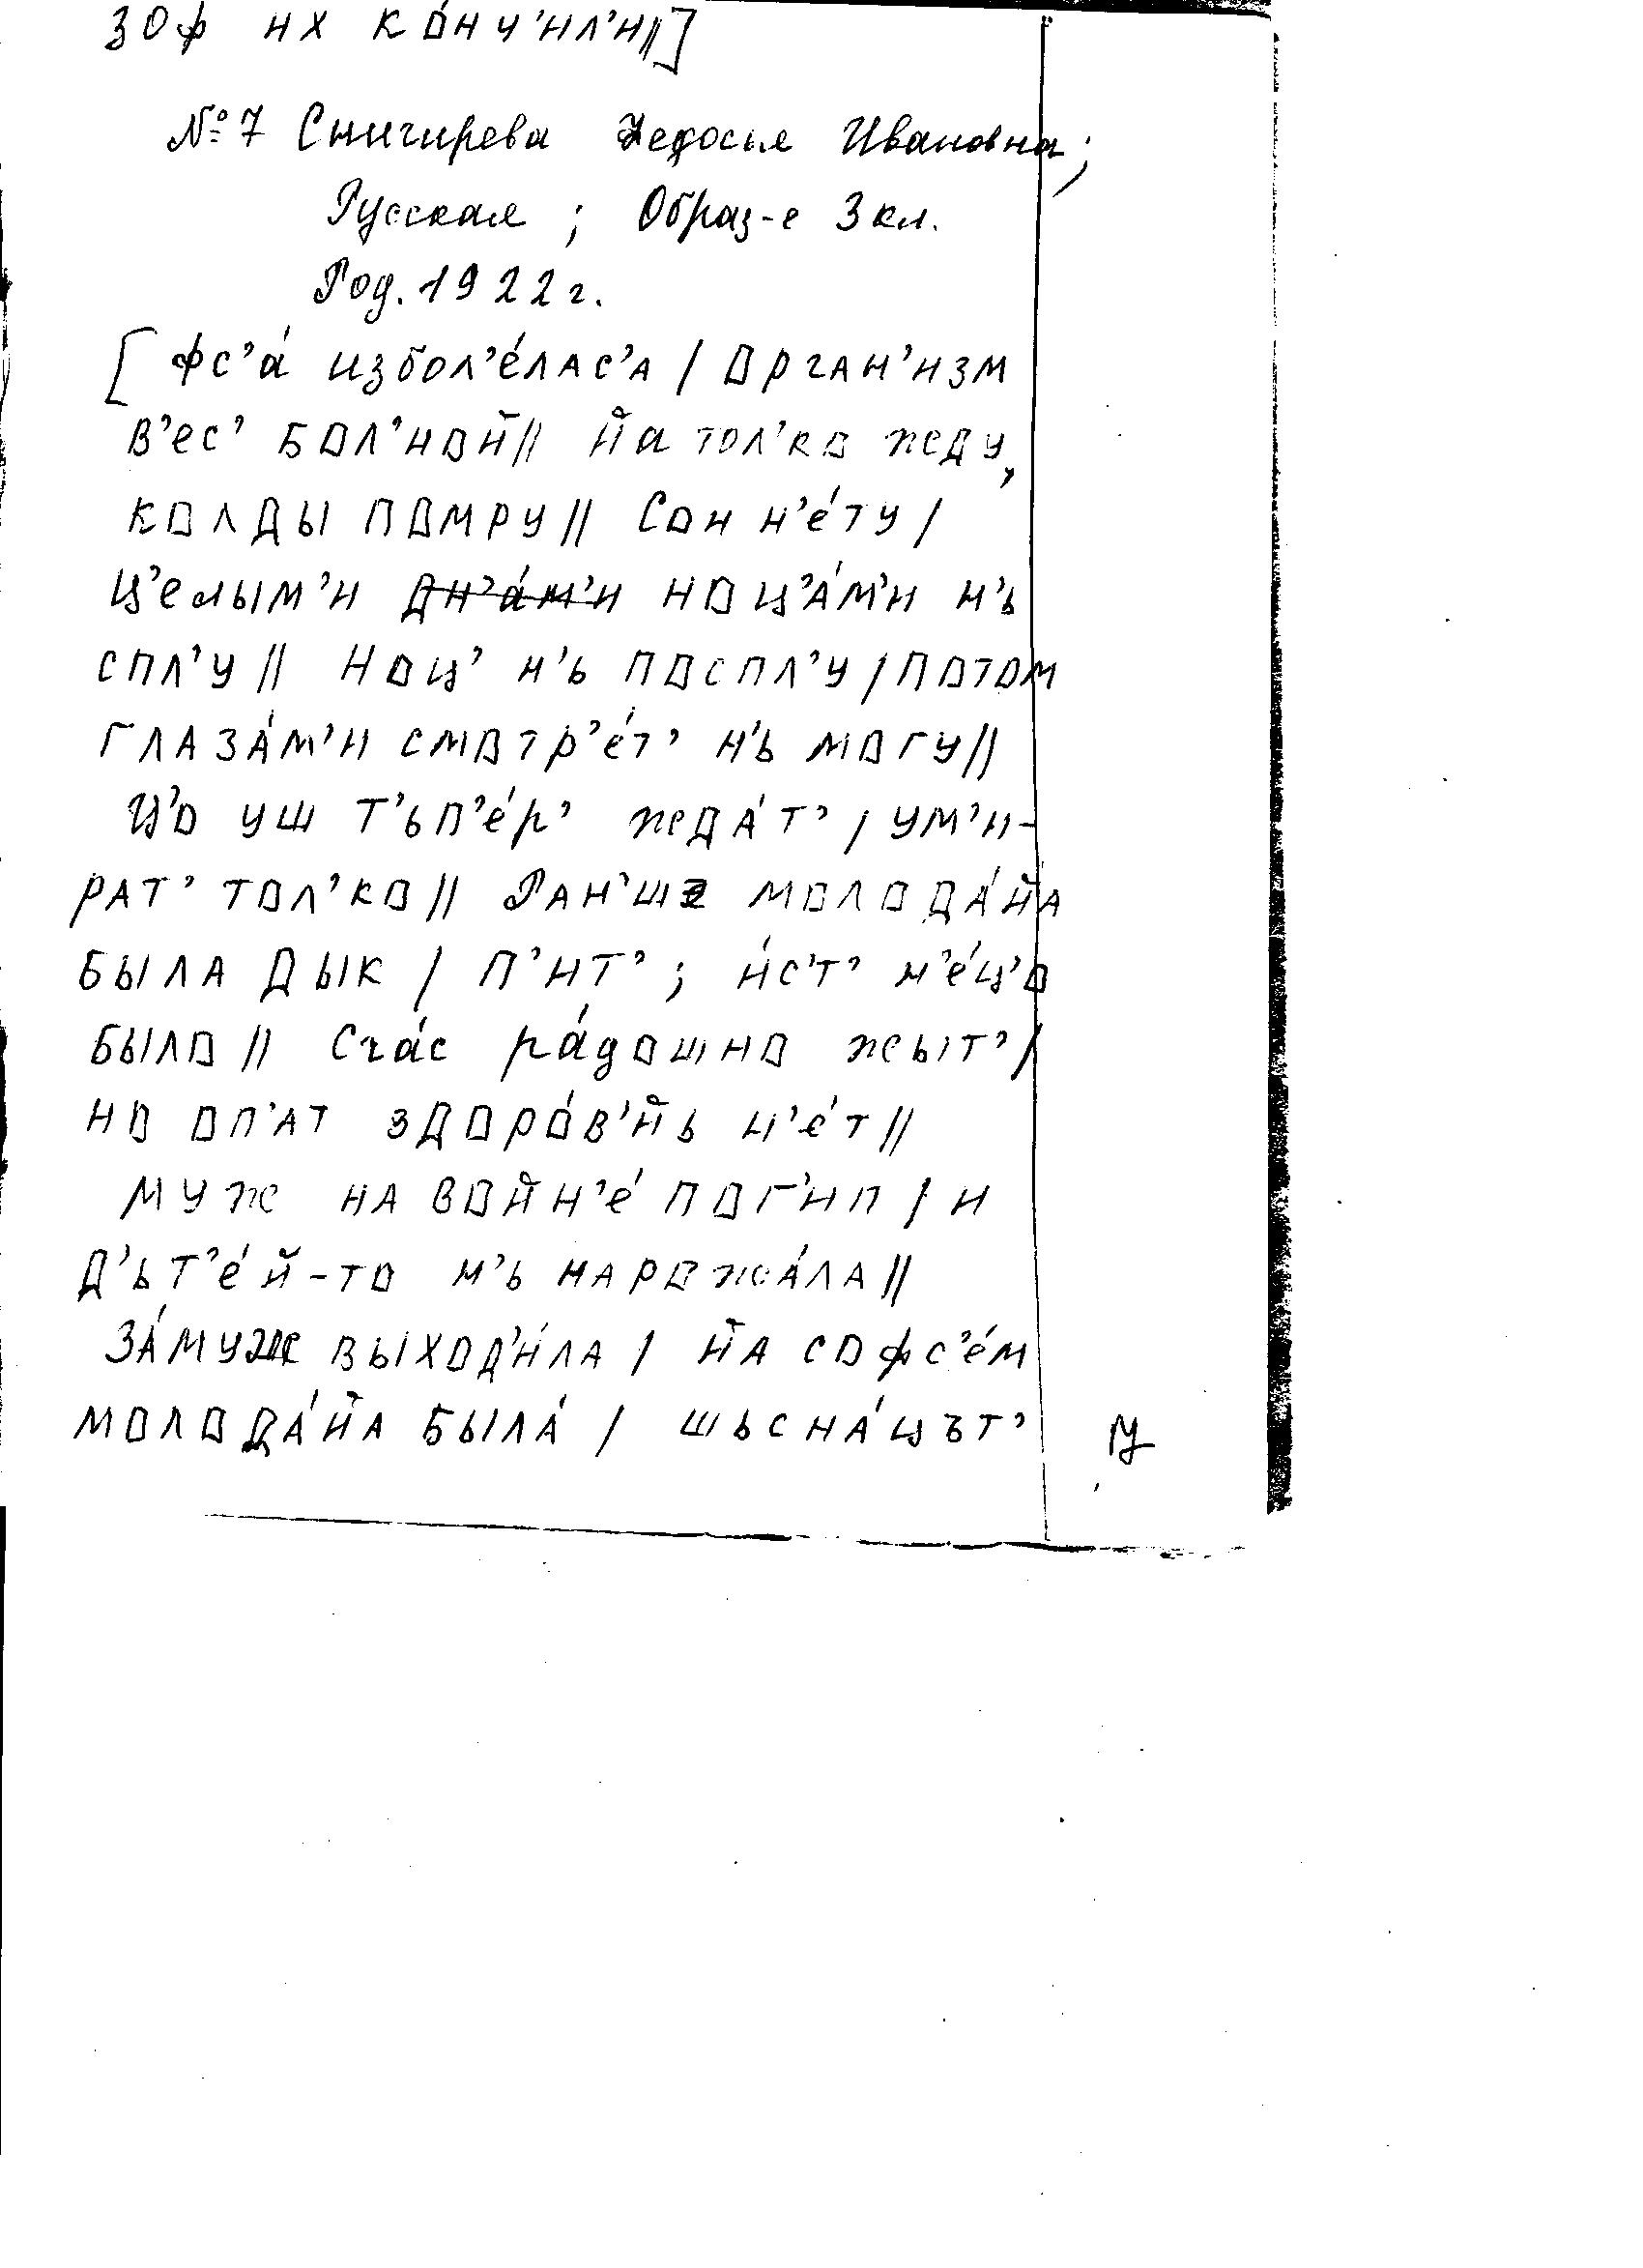 зоф их ко́нч'ил'и//]
№7 Снигирева Федосья Ивановна;
Русская ; Образ-е 3 кл.
Род. 1922 г.
[ фс'а́ избол'е́лас'а / орган'изм
в'ес' бол'ной// йа тол'ко жду,
колды помру // Сон н'е́ту /
ц'елым'и ~~дн'а́м'и~~ ноц'а́м'и н'ь
спл'у // Ноц' н'ь поспл'у / потом
глаза́м'и смотр'е́т' н'ь могу //
Ц'о уш т'ьп'е́р' жда́т' / ум'и-
рат' тол'ко // Ран'ше молода́йа
была дык / п'ит' ; и́с'т' н'е́ц'о
было // Счас ра́дошно жыт' /
но оп'ат здоро́в'йь н'е́т //
муж на войн'е́ пог'ип / и
д'ьт'е́й-то н'ь нарожа́ла //
За́муж выход'и́ла / йа софс'е́м
молода́йа была́ / шьсна́цът'